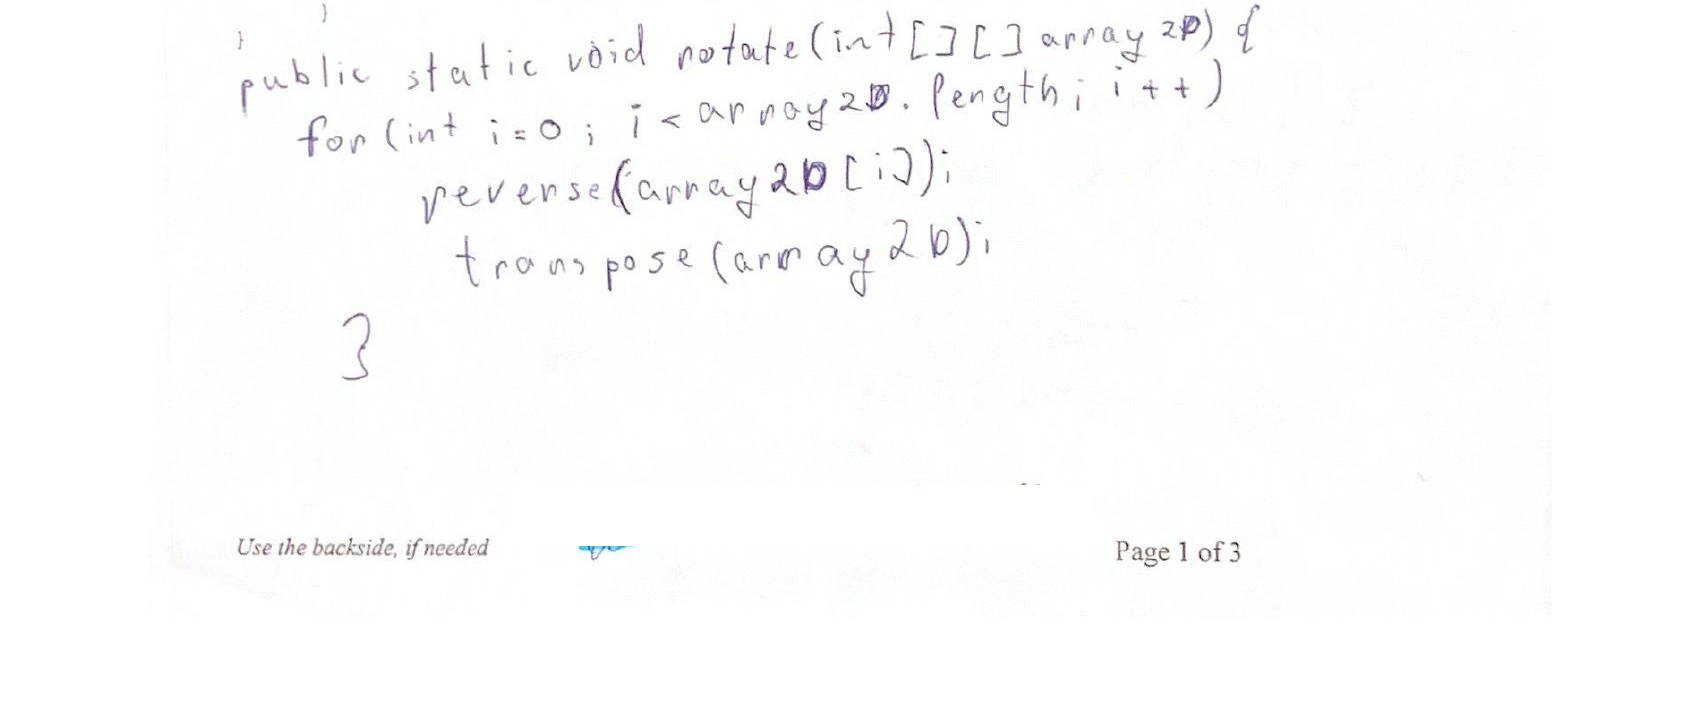 }
}
public static void rotate(int[][] array2D) {
for(int i=0; i<array2D.length; i++)
reverse(array2D[i]);
transpose(array2D);
}
Use the backside, if needed
Page 1 of 3